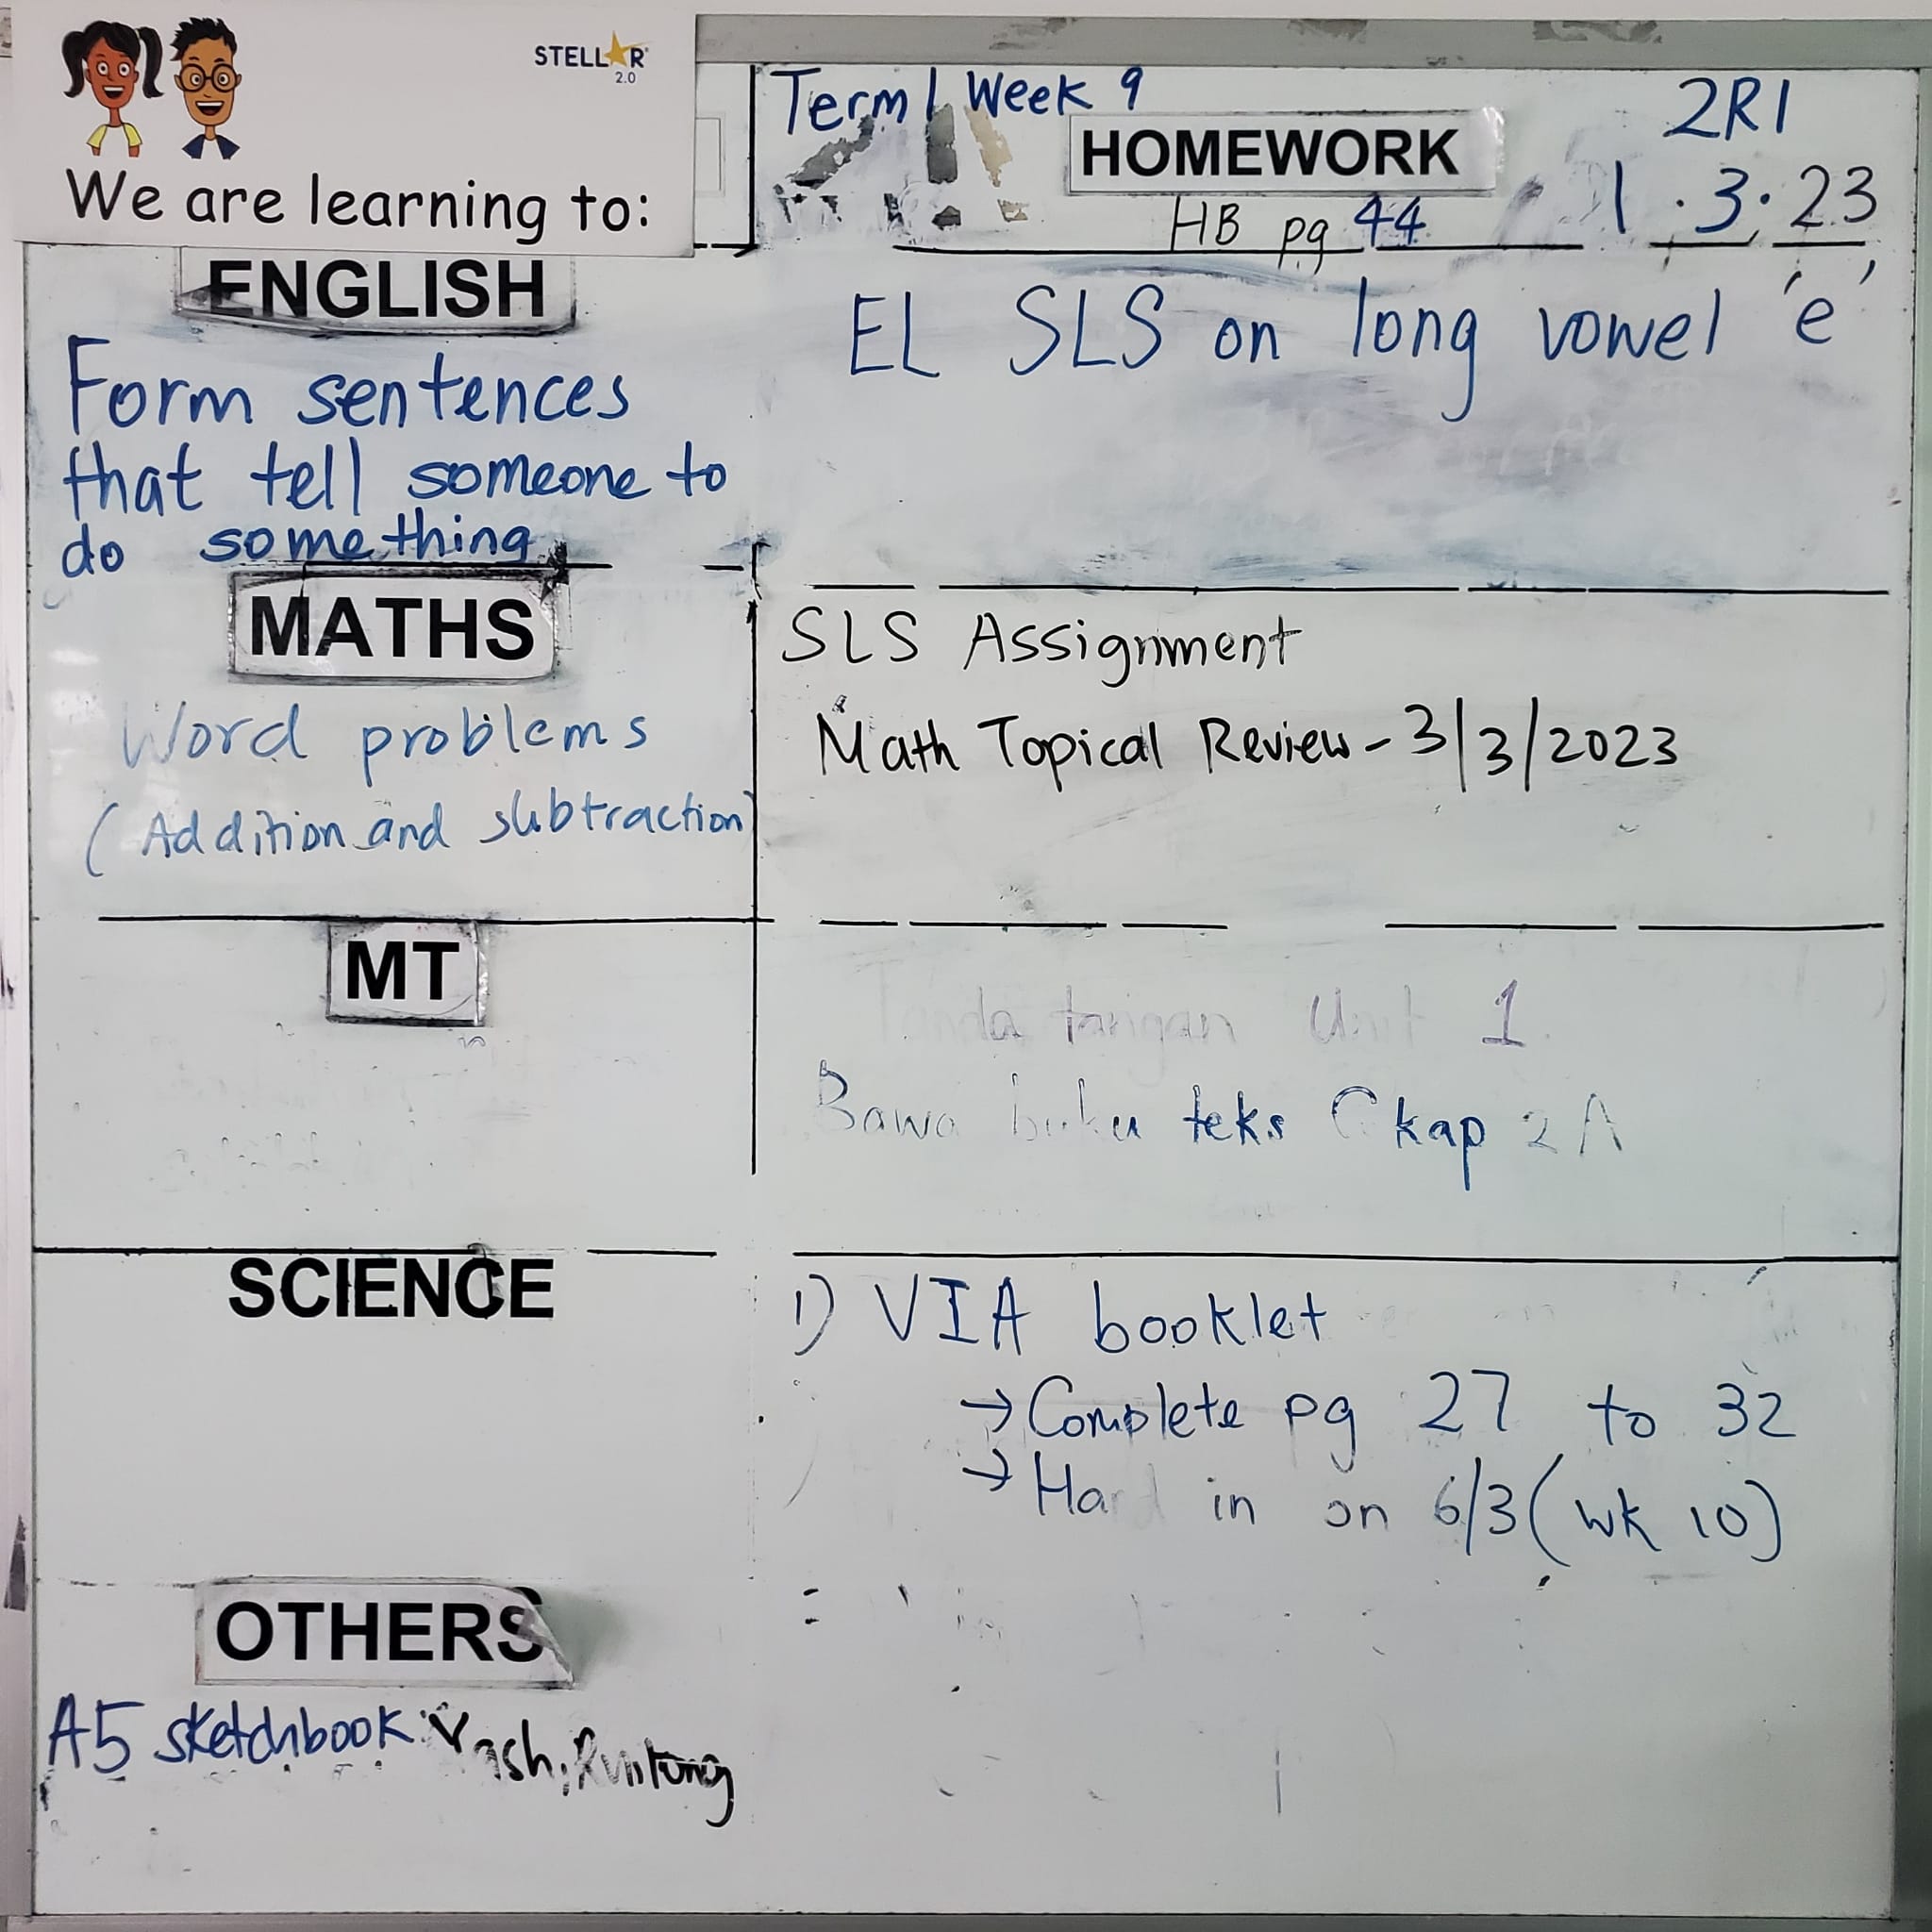 STELLAR 2.0
We are learning to:
Term 1 Week 9
HOMEWORK
2R1
HB pg 44
1.3.23
ENGLISH
Form sentences
that tell someone to
do something
EL SLS on long vowel 'e'
MATHS
Word problems
(Addition and subtraction)
SLS Assignment
Math Topical Review - 3/3/2023
MT
Tanda tangan Unit 1
Bawa buku teks Cekap 2A
SCIENCE
1) VIA booklet
→ Complete pg 27 to 32
→ Hand in on 6/3 (wk 10)
OTHERS
A5 sketchbook: Yash, Runtong